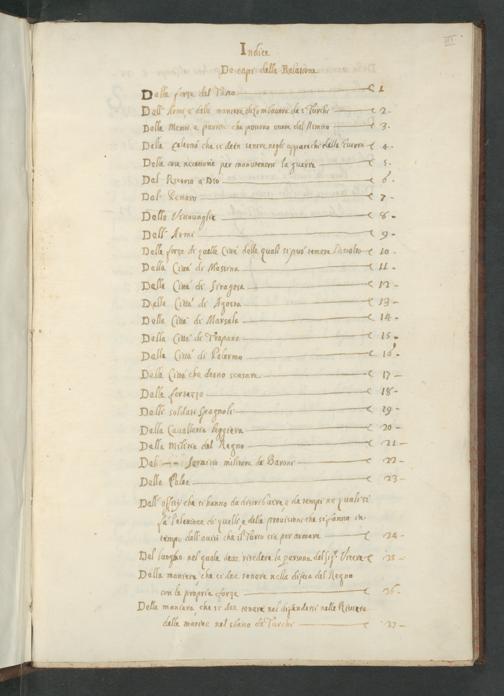 III
Indice
De capi della Relatione
Delle forze del Turco c 1
Dell' Armi, e della maniera di combattere de Turchi c 2
Della che possono venire dal Nemico c 3
Della che si deve tenere negli apparechi della Guerra c 4
Delle cose necessarie per mantenere la guerra c 5
Del Ricorso a Dio c 6
Del Denaro c 7
Delle Vittovaglie c 8
Dell' Armi c 9
Delle forze di quelle Città delle quali si può temere l'assalto c 10
Della Città di Messina c 11
Della Città di Siragosa c 12
Della Città di Agosta c 13
Della Città di Marsala c 14
Della Città di Trapane c 15
Della Città di Palermo c 16
Delle Città che deono c 17
Delle fortezze c 18
Delli soldati Spagnoli c 19
Della Cavalleria leggiera c 20
Della Militia del Regno c 21
Del Servitio militare de Baroni c 22
Delle Galee c 23
Dell' officij che si hanno da distribuire, e da tempi ne quali si
fa l'elettione di quelli, e della provisione che si fanno in
tempo dell' avisi che il Turco sia per armare c 24
Del luoco nel quale deve risedere la persona del Sig.r Vicere c 25
Della maniera, che si dee tenere nella difesa del Regno
con le proprie forze c 26
Della maniera, che si dee tenere nel difendersi nelle Riviere
delle marine nel sbarco de Turchi c 27